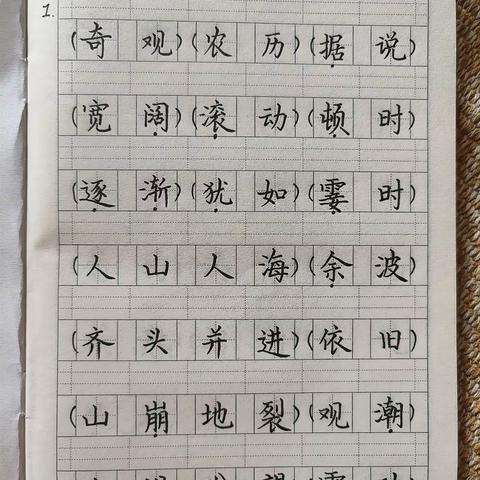 1.
(奇观)(农历)(据说)
(宽阔)(滚动)(顿时)
(逐渐)(犹如)(霎时)
(人山人海)(余波)
(齐头并进)(依旧)
(山崩地裂)(观潮)